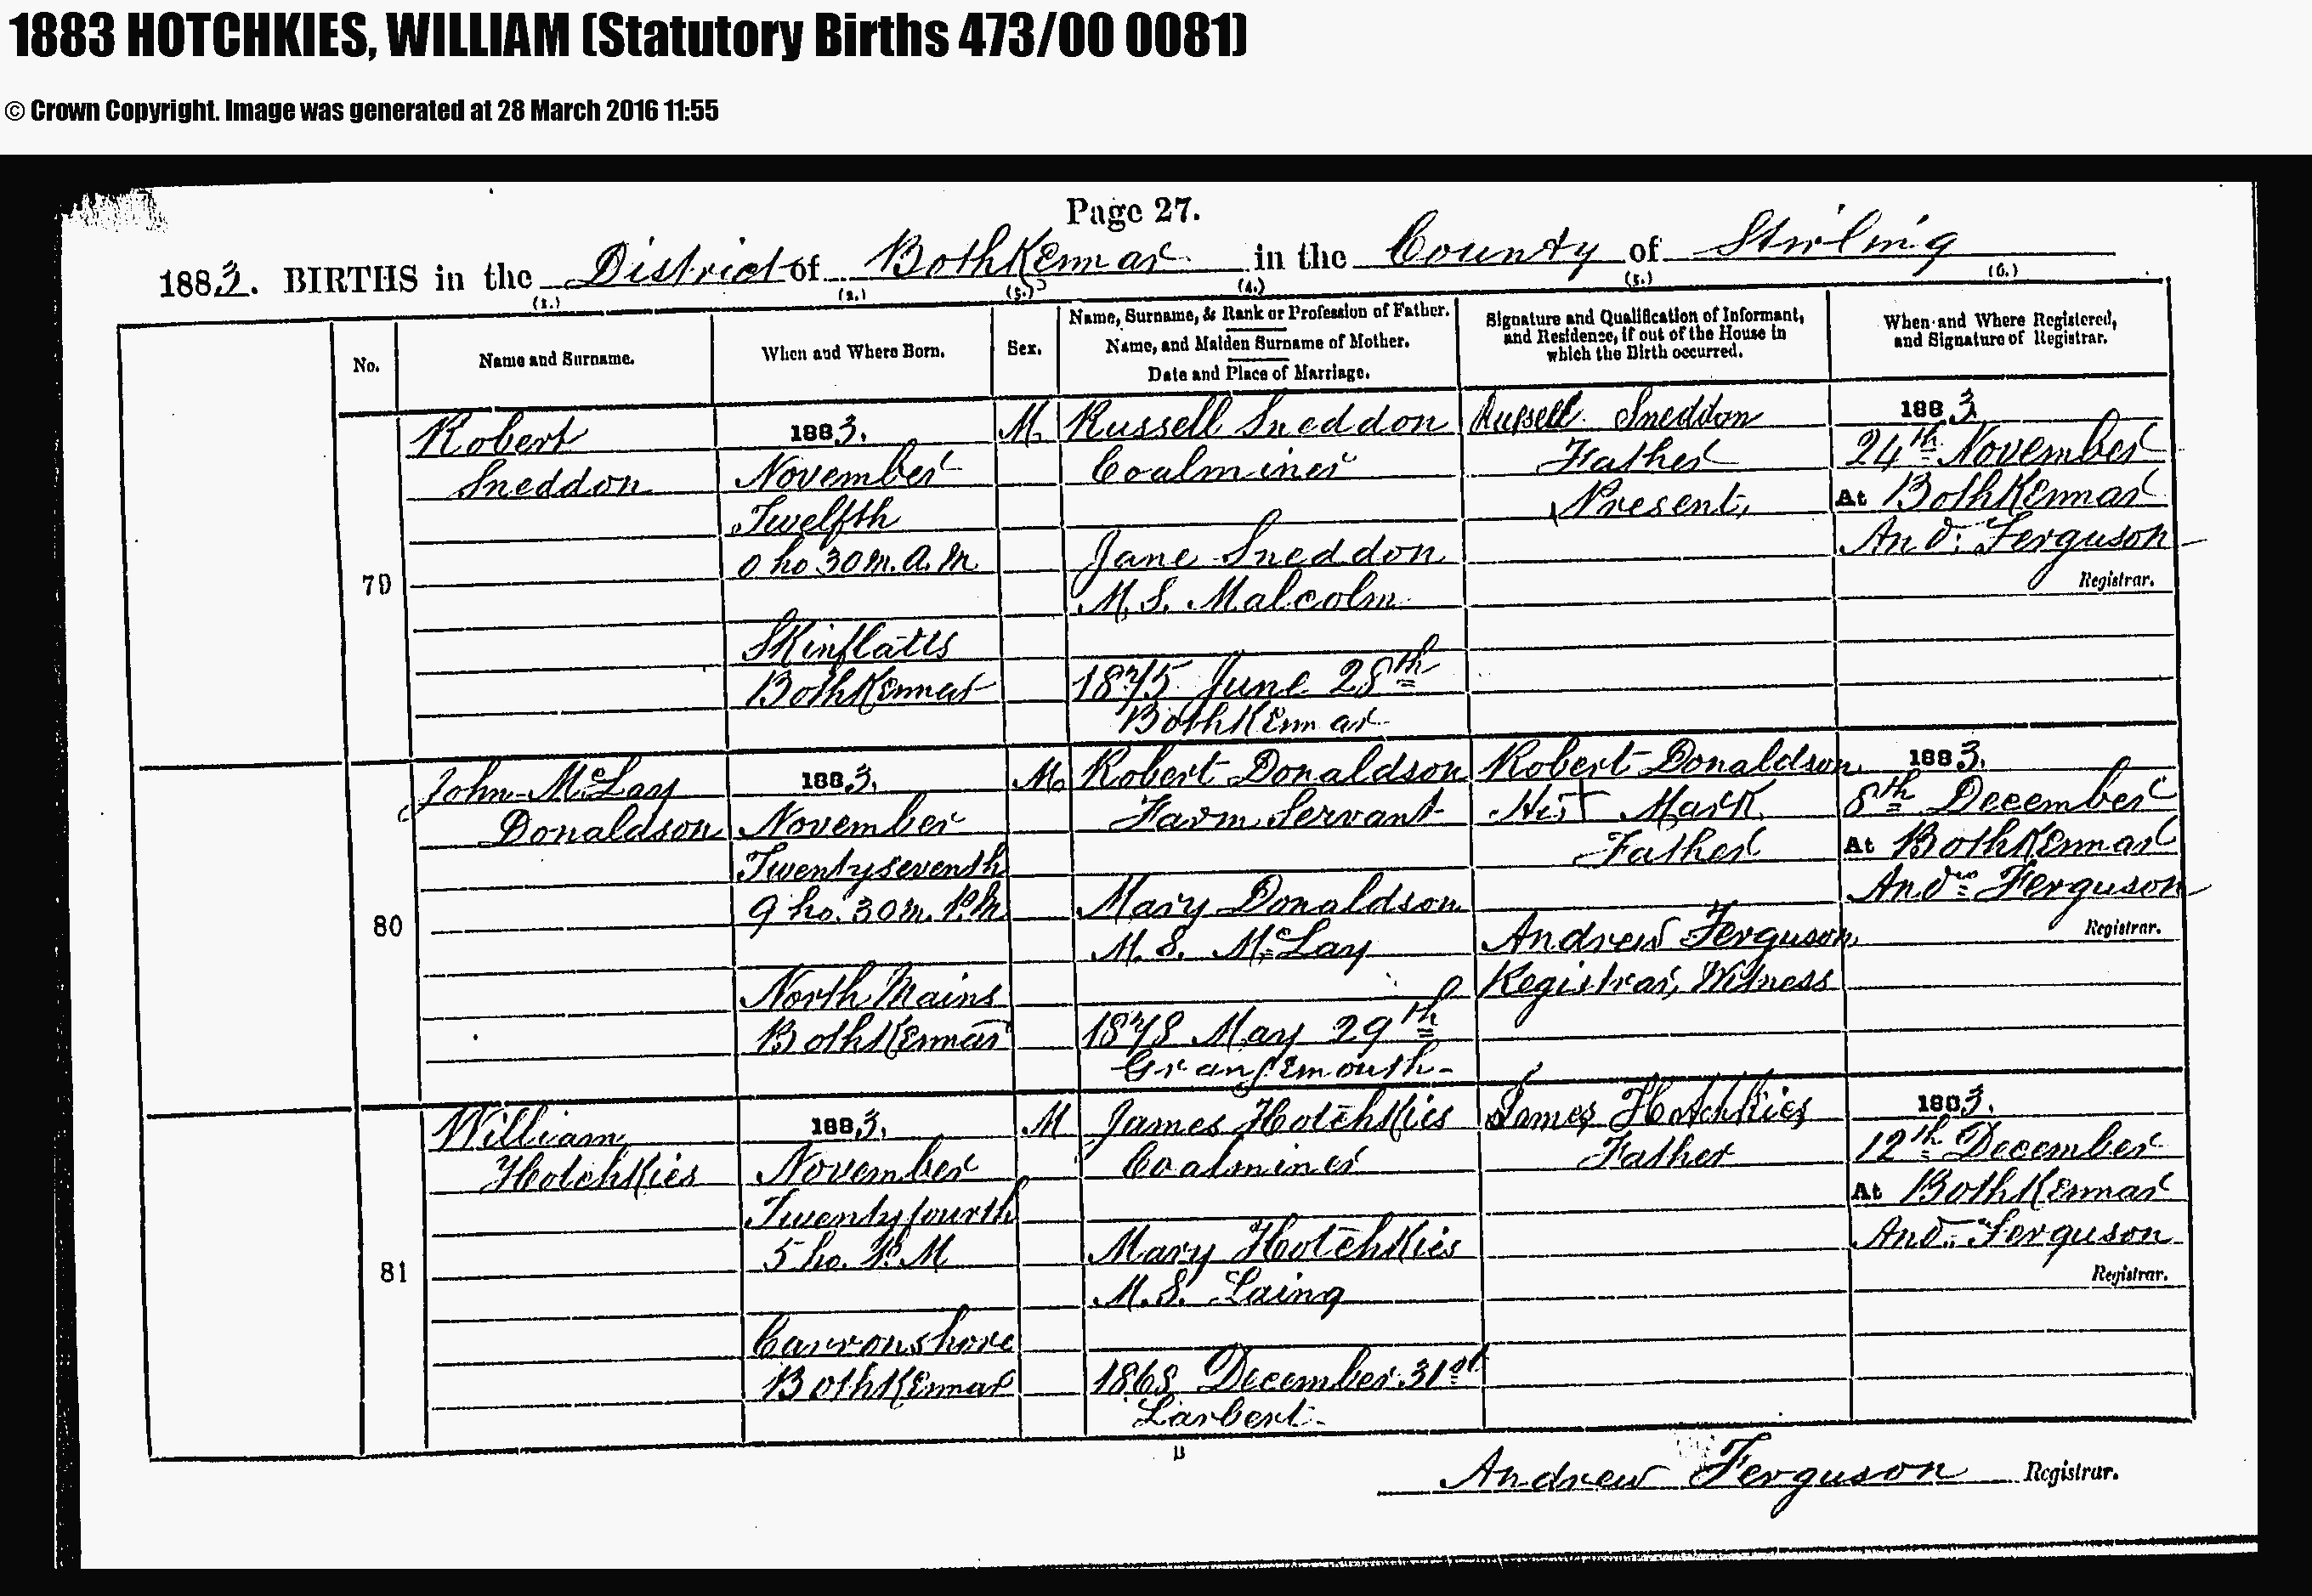 1883 HOTCHKIES, WILLIAM (Statutory Births 473/00 0081)
© Crown Copyright. Image was generated at 28 March 2016 11:55
Page 27.
1883. BIRTHS in the District of BothKennar in the County of Stirling
(1.) (2.) (3.) (4.) (5.) (6.)
No.
Name and Surname.
When and Where Born.
Sex.
Name, Surname, & Rank or Profession of Father.
Name, and Maiden Surname of Mother.
Date and Place of Marriage.
Signature and Qualification of Informant,
and Residence, if out of the House in
which the Birth occurred.
When and Where Registered,
and Signature of Registrar.
79
Robert
Sneddon
1883.
November
Twelfth
0 ho 30 m. A.M
Skinflatts
BothKennar
M.
Russell Sneddon
Coalminer
Jane Sneddon
M.S. Malcolm
1875 June 28th
BothKennar
Russell Sneddon
Father
Present,
1883
24th November
At BothKennar
Andw. Ferguson
Registrar.
80
John McLay
Donaldson
1883.
November
Twentyseventh
9 ho. 30 m. P.M
North Mains
BothKennar
M.
Robert Donaldson
Farm Servant
Mary Donaldson
M.S. McLay
1878 May 29th
Grangemouth
Robert Donaldson
His + Mark
Father
Andrew Ferguson
Registrar, Witness
1883.
8th December
At BothKennar
Andw. Ferguson
Registrar.
81
William
Hotchkies
1883.
November
Twentyfourth
5 ho. P.M
Carronshore
BothKennar
M
James Hotchkies
Coalminer
Mary Hotchkies
M.S. Laing
1868 December 31st
Larbert
James Hotchkies
Father
1883.
12th December
At BothKennar
Andw. Ferguson
Registrar.
B
Andrew Ferguson Registrar.